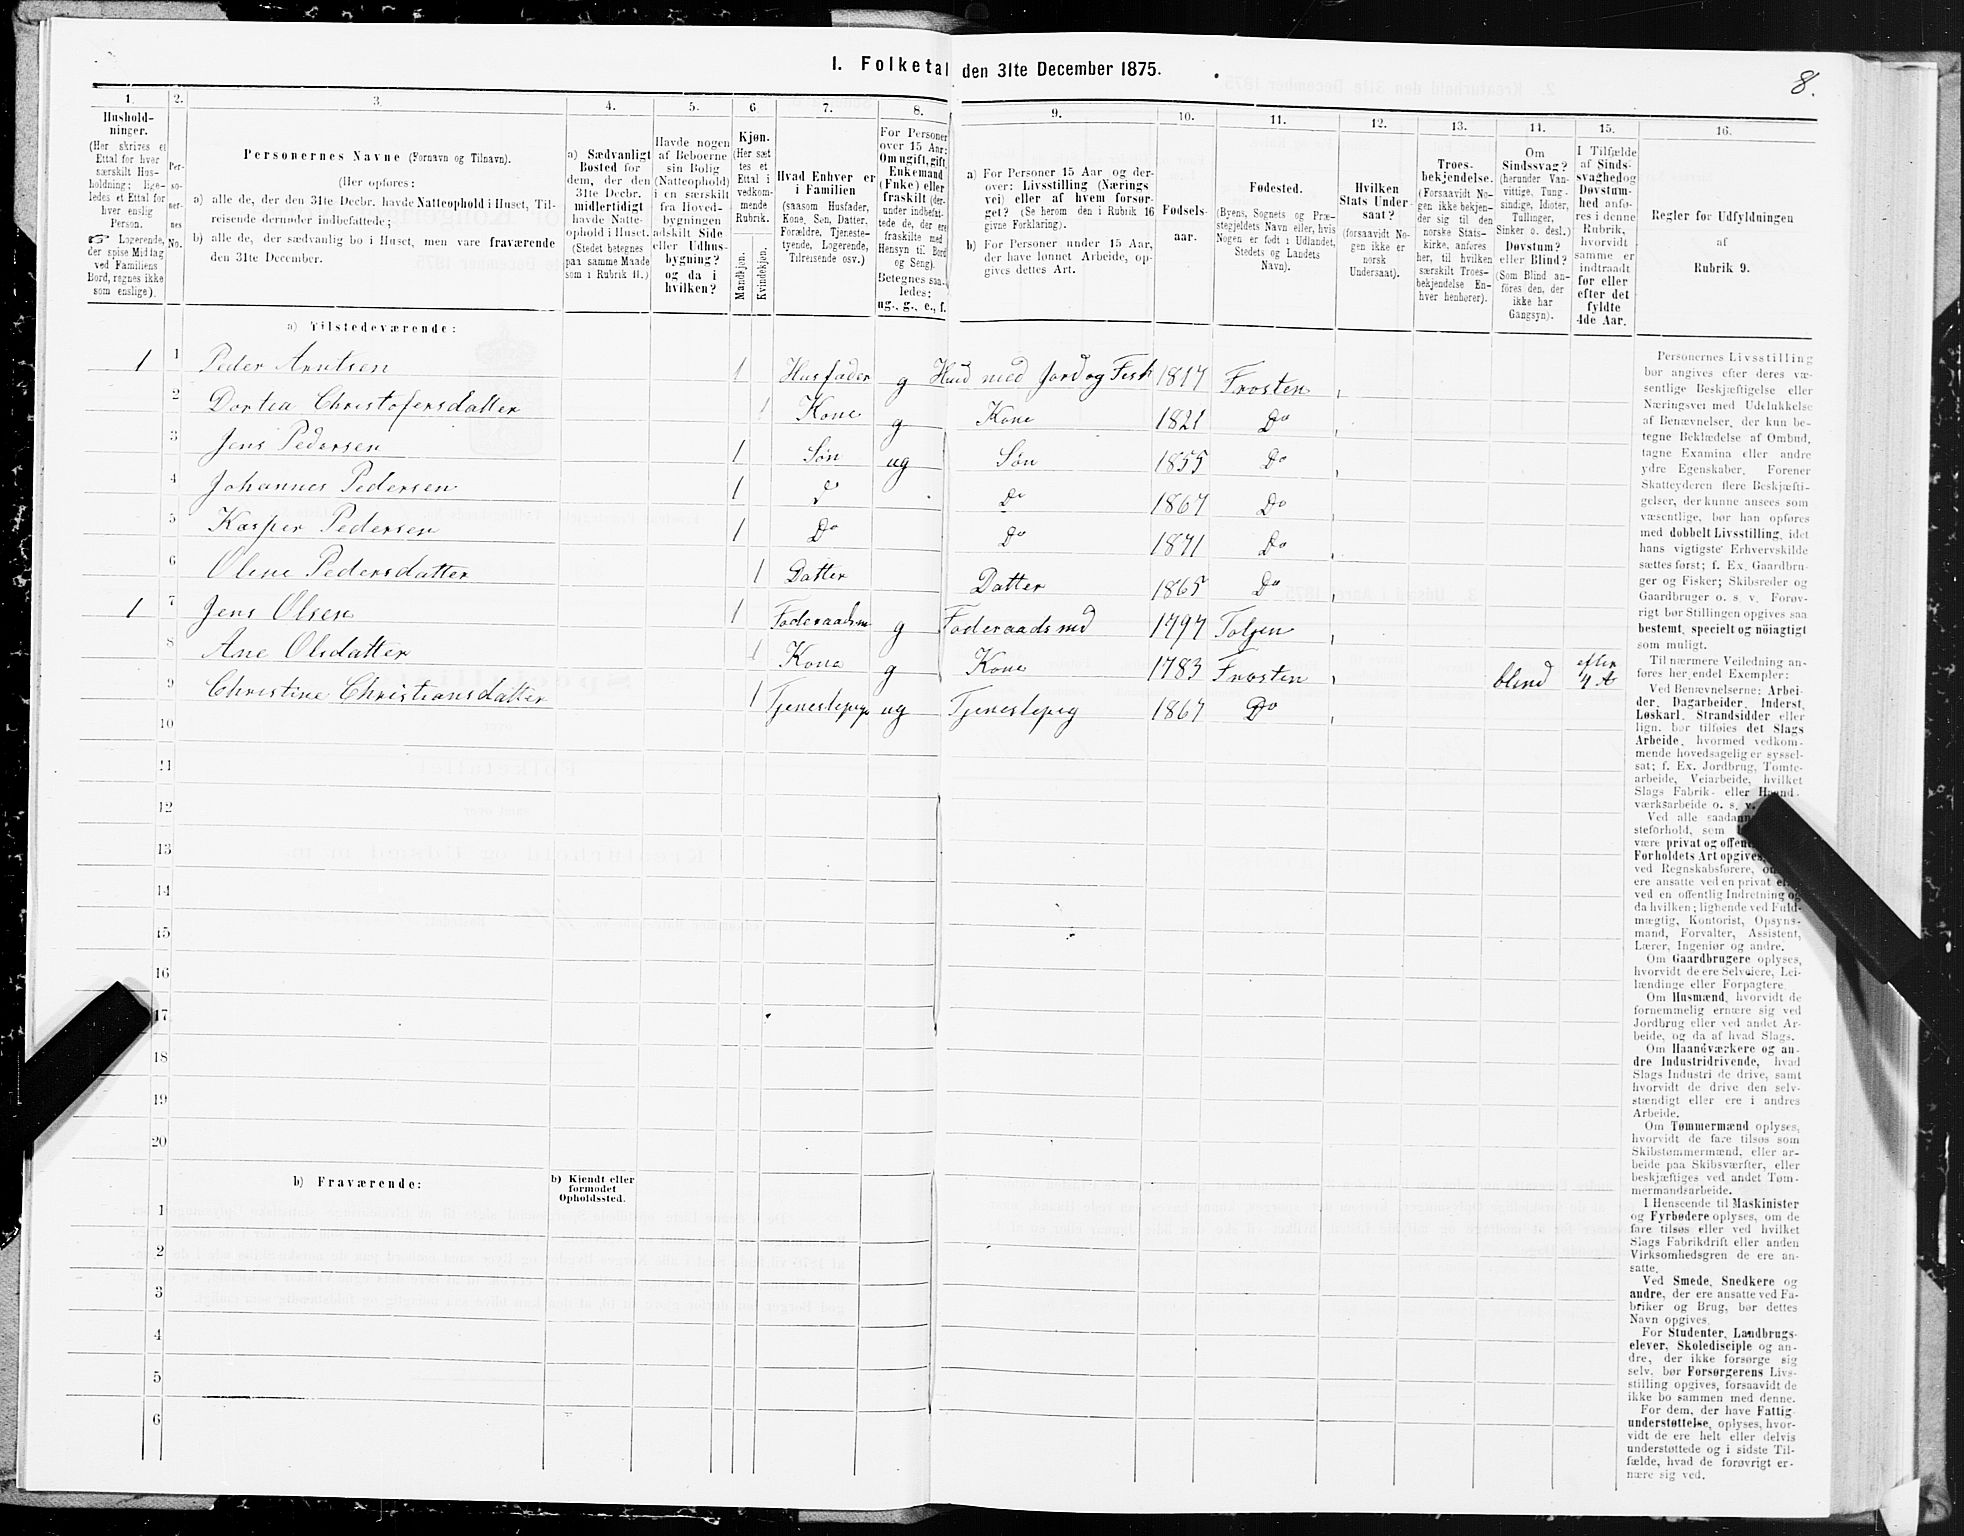 8.
I. Folketal den 31te December 1875.
1.
Hushold-
ninger.
(Her skrives et
Ettal for hver
særskilt Hus-
holdning; lige-
ledes et Ettal for
hver enslig
Person.
☞ Logerende,
der spise Middag
ved Familiens
Bord, regnes ikke
som enslige).
2.
Per-
so-
ner-
nes
No.
3.
Personernes Navne (Fornavn og Tilnavn).
(Her opføres:
a) alle de, der den 31te Decbr. havde Natteophold i Huset, Til-
reisende derunder indbefattede;
b) alle de, der sædvanlig bo i Huset, men vare fraværende
den 31te December.
4.
a) Sædvanligt
Bosted for
dem, der den
31te Decbr.
midlertidigt
havde Natte-
ophold i Huset.
(Stedet betegnes
paa samme Maade
som i Rubrik 11.)
5.
Havde nogen
af Beboerne
sin Bolig
(Natteophold)
i en særskilt
fra Hoved-
bygningen
adskilt Side
eller Udhus-
bygning?
og da i
hvilken?
6
Kjøn.
(Her sæt
tes et
Ettal i
vedkom-
mende
Rubrik.
Mandkjøn.
Kvindekjøn.
7.
Hvad Enhver er
i Familien
(saasom Husfader,
Kone, Søn, Datter,
Forældre, Tjeneste-
tyende, Logerende,
Tilreisende osv.)
8.
For Personer
over 15 Aar:
Om ugift, gift,
Enkemand
(Enke) eller
fraskilt (der-
under indbefat-
tede de, der ere
fraskilte med
Hensyn til Bord
og Seng).
Betegnes saa-
ledes:
ug., g., e., f.
9.
a) For Personer 15 Aar og der-
over: Livsstilling (Nærings
vei) eller af hvem forsør-
get? (Se herom den i Rubrik 16
givne Forklaring).
b) For Personer under 15 Aar,
der have lønnet Arbeide, op-
gives dettes Art.
10.
Fødsels-
aar.
11.
Fødested.
(Byens, Sognets og Præ-
stegjeldets Navn eller, hvis
Nogen er født i Udlandet,
Stedets og Landets
Navn).
12.
Hvilken
Stats Under-
saat?
(forsaavidt No-
gen ikke er
norsk
Undersaat).
13.
Troes-
bekjendelse.
(Forsaavidt No-
gen ikke bekjen-
der sig til den
norske Stats-
kirke, anføres
her, til hvilken
særskilt Troes-
bekjendelse En-
hver henhører).
14.
Om
Sindssvag?
(herunder Van-
vittige, Tung-
sindige, Idioter,
Tullinger,
Sinker o. desl.)
Døvstum?
eller Blind?
(Som Blind an-
føres den, der
ikke har
Gangsyn).
15.
I Tilfælde
af Sinds-
svaghed og
Døvstum-
hed anfø-
res i denne
Rubrik,
hvorvidt
samme er
indtraadt
før eller
efter det
fyldte
4de Aar.
16.
Regler for Udfyldningen
af
Rubrik 9.
a) Tilstedeværende:
1 1 Peder Arntsen 1 Husfader g Husd med Jord og Fisk 1817 Frosten
2 Dortea Christofersdatter 1 Kone g Kone 1821 Do
3 Jens Pedersen 1 Søn ug Søn 1855 Do
4 Johannes Pedersen 1 Do Do 1867 Do
5 Kasper Pedersen 1 Do Do 1871 Do
6 Oline Pedersdatter 1 Datter Datter 1865 Do
1 7 Jens Olsen 1 Føderaadsm g Føderaadsmd 1797 Tolgen
8 Ane Olsdatter 1 Kone g Kone 1783 Frosten blind efter 4 A
9 Christine Christiansdatter 1 Tjenestepige ug Tjenestepig 1867 Do
10
11
12
13
14
15
16
17
18
19
20
b) Fraværende:
b) Kjendt eller
formodet
Opholdssted.
1
2
3
4
5
6
Personernes Livsstilling
bør angives efter deres væ-
sentlige Beskjæftigelse eller
Næringsvei med Udelukkelse
af Benævnelser, der kun be-
tegne Beklædelse af Ombud,
tagne Examina eller andre
ydre Egenskaber. Forener
Skatteyderen flere Beskjæfti-
gelser, der kunne ansees som
væsentlige, bør han opføres
med dobbelt Livsstilling, idet
hans vigtigste Erhvervskilde
sættes først; f. Ex. Gaardbru-
ger og Fisker; Skibsreder og
Gaardbruger o. s. v. Forøv-
rigt bør Stillingen opgives saa
bestemt, specielt og nöiagtigt
som muligt.
Til nærmere Veiledning an-
føres her endel Exempler:
Ved Benævnelserne: Arbei-
der, Dagarbeider, Inderst,
Løskarl, Strandsidder eller
lign. bør tilføies det Slags
Arbeide, hvormed vedkom-
mende hovedsagelig er syssel-
sat; f. Ex. Jordbrug, Tomte-
arbeide, Veiarbeide, hvilket
Slags Fabrik- eller Haand-
værksarbeide o. s. v.
Ved alle saadann
steforhold, som
være privat og offen
Forholdets Art opgives,
ved Regnskabsførere,
ere ansatte ved en privat el
ved en offentlig Indretning og
da hvilken; lignende ved Fuld-
mægtig, Kontorist, Opsyns-
mand, Forvalter, Assistent,
Lærer, Ingeniør og andre.
Om Gaardbrugere oplyses,
hvorvidt de ere Selveiere, Lei-
lændinge eller Forpagtere.
Om Husmænd, hvorvidt de
fornemmelig ernære sig ved
Jordbrug eller ved andet Ar-
beide, og da af hvad Slags.
Om Haandværkere og an-
dre Industridrivende, hvad
Slags Industri de drive, samt
hvorvidt de drive den selv-
stændigt eller ere i andres
Arbeide.
Om Tømmermænd oplyses,
hvorvidt de fare tilsøs som
Skibstømmermænd, eller ar-
beide paa Skibsværfter, eller
beskjæftiges ved andet Tøm-
mermandsarbeide.
I Henseende til Maskinister
og Fyrbødere oplyses, om de
fare tilsøs eller ved hvilket
Slags Fabrikdrift eller anden
Virksomhedsgren de ere an-
satte.
Ved Smede, Snedkere og
andre, der ere ansatte ved Fa-
briker og Brug, bør dettes
Navn opgives.
For Studenter, Landbrugs-
elever, Skoledisciple og an-
dre, der ikke forsørge sig
selv, bør Forsørgerens Livs-
stilling opgives, forsaavidt de
ikke bo sammen med denne.
For dem, der have Fattig-
understøttelse, oplyses, hvor-
vidt de ere helt eller delvis
understøttede og i sidste Til-
fælde, hvad de forøvrigt er-
nære sig ved.